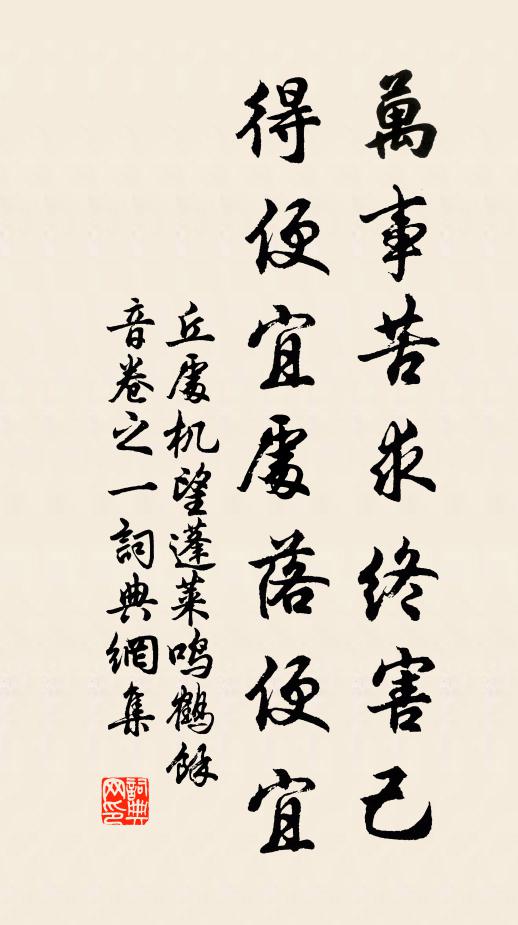 萬事苦求終害己
得便宜處落便宜
丘處机望蓬萊鳴鶴餘
音卷之一詞典網集
詞典網印